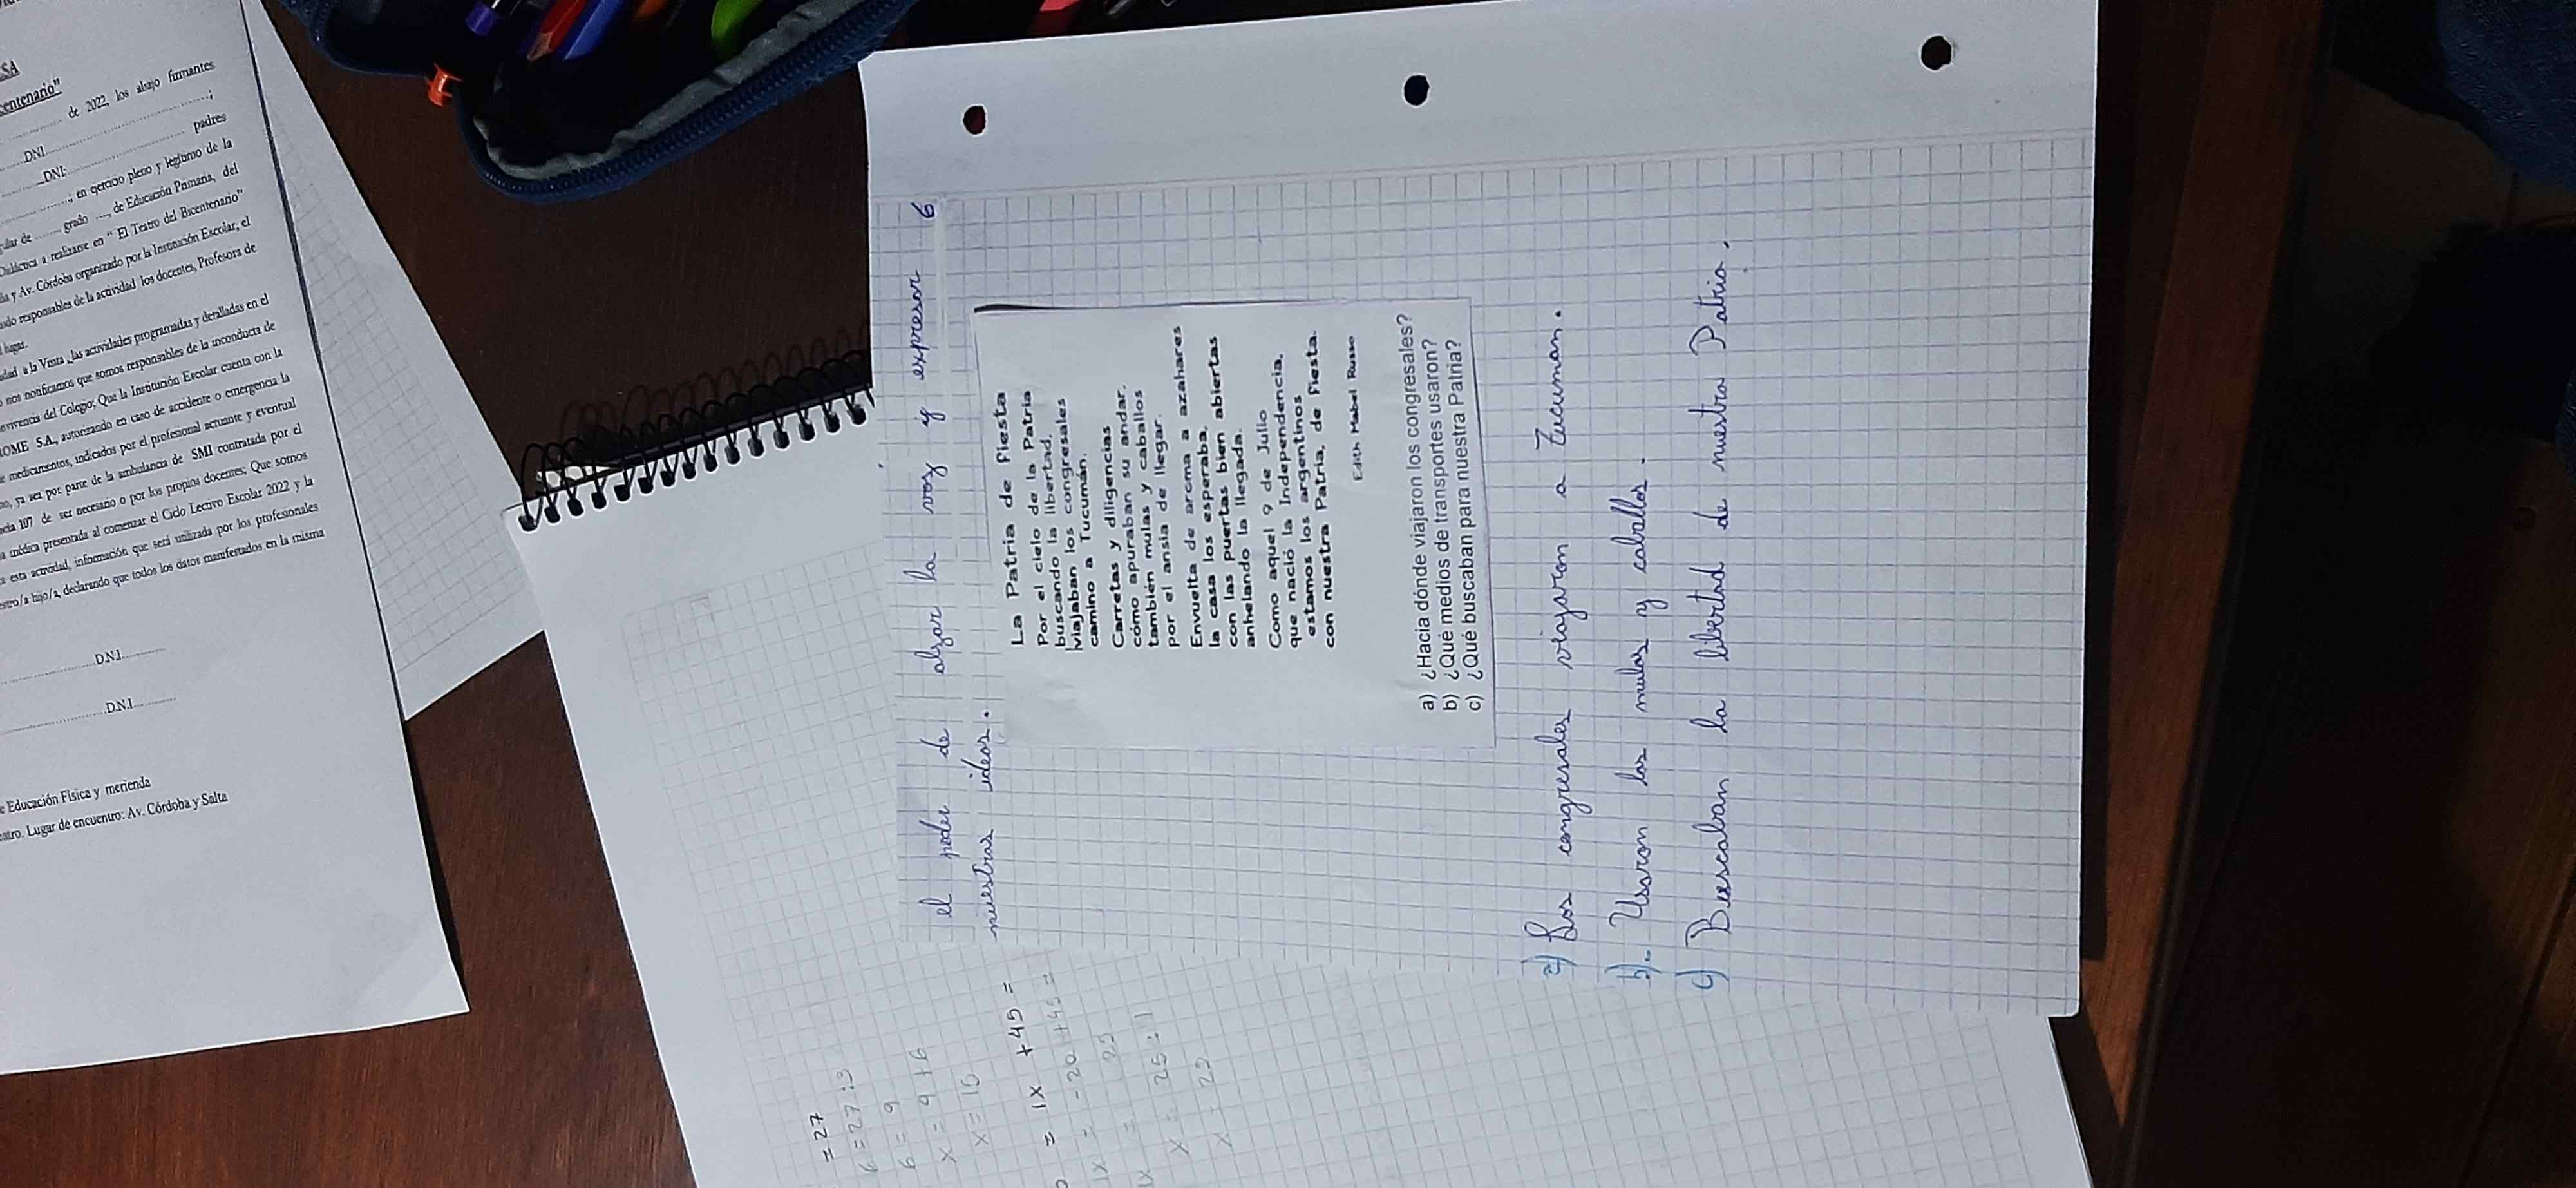 SA
centenario"
de 2022, los abajo firmantes
DNI
;
DNI: padres
; en ejercicio pleno y legítimo de la
ular de grado ...., de Educación Primaria, del
Didáctica a realizarse en " El Teatro del Bicentenario"
y Av. Córdoba organizado por la Institución Escolar, el
responsables de la actividad los docentes, Profesora de
lugar.
a la Visita , las actividades programadas y detalladas en el
nos notificamos que somos responsables de la inconducta de
del Colegio; Que la Institución Escolar cuenta con la
S.A., autorizando en caso de accidente o emergencia la
medicamentos, indicados por el profesional actuante y eventual
ya sea por parte de la ambulancia de SMI contratada por el
107 de ser necesario o por los propios docentes; Que somos
médica presentada al comenzar el Ciclo Lectivo Escolar 2022 y la
esta actividad, información que será utilizada por los profesionales
hijo/a, declarando que todos los datos manifestados en la misma
D.N.I.
D.N.I
e Educación Física y merienda
Lugar de encuentro: Av. Córdoba y Salta
= 27
6 = 27 : 3
6 = 9
x = 9 + 6
x = 15
= 1x + 45 =
1x = -20 + 45 =
1x = 25
x = 25 : 1
x = 25
6
el poder de alzar la voz y expresar
nuestras ideas.
La Patria de fiesta
Por el cielo de la Patria
buscando la libertad,
viajaban los congresales
camino a Tucumán.
Carretas y diligencias
cómo apuraban su andar.
también mulas y caballos
por el ansia de llegar.
Envuelta de aroma a azahares
la casa los esperaba,
con las puertas bien abiertas
anhelando la llegada.
Como aquel 9 de Julio
que nació la Independencia,
estamos los argentinos
con nuestra Patria, de fiesta.
Edith Mabel Russo
a) ¿Hacia dónde viajaron los congresales?
b) ¿Qué medios de transportes usaron?
c) ¿Qué buscaban para nuestra Patria?
a) Los congresales viajaron a Tucuman.
b). Usaron las mulas y caballos.
c) Buescaban la libertad de nuestra Patria.